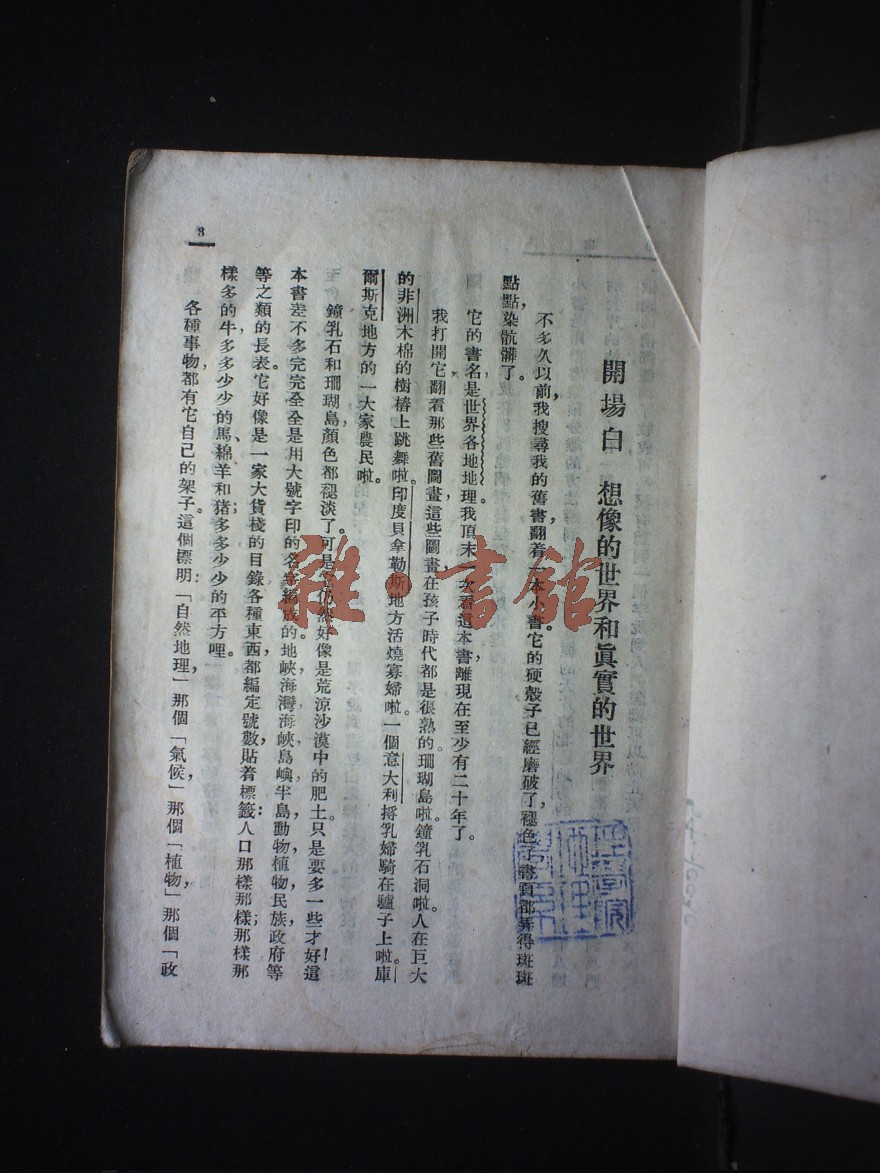 開場白　想像的世界和眞實的世界
不多久以前，我搜尋我的舊書，翻着一本小書。它的硬殼子已經磨破了，褪色了，書頁都弄得斑斑
點點，染骯髒了。
它的書名是世界各地地理。我頂末一次看這本書，離現在至少有二十年了。
我打開它，翻看那些舊圖畫，這些圖畫在孩子時代都是很熟的。珊瑚島啦。鐘乳石洞啦。人在巨大
的非洲木棉的樹樁上跳舞啦。印度貝拿勒斯地方活燒寡婦啦。一個意大利捋乳婦騎在驢子上啦。庫
爾斯克地方的一大家農民啦。
鐘乳石和珊瑚島，顏色都褪淡了。可是仍然好像是荒涼沙漠中的肥土。只是要多一些才好！這
本書差不多完完全全是用大號字印的名字編成的：地峽，海灣，海峽，島嶼，半島，動物，植物，民族，政府等
等之類的長表。它好像是一家大貨棧的目錄，各種東西都編定號數，貼着標籤：人口那樣那樣多；那
樣多的牛，多多少少的馬、綿羊和猪；多多少少的平方哩。
各種事物都有它自己的架子。這個標明：「自然地理」，那個「氣候」，那個「植物」，那個「政
3
雜·書館